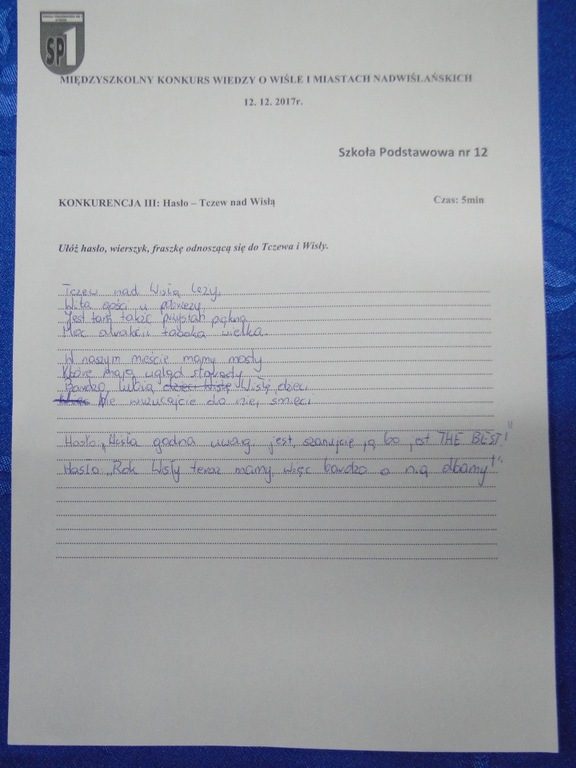 SP1
MIĘDZYSZKOLNY KONKURS WIEDZY O WIŚLE I MIASTACH NADWIŚLAŃSKICH
12. 12. 2017r.
Szkoła Podstawowa nr 12
KONKURENCJA III: Hasło – Tczew nad Wisłą
Czas: 5min
Ułóż hasło, wierszyk, fraszkę odnoszącą się do Tczewa i Wisły.
Tczew nad Wisłą leży,
Wita gości u
Jest tam także przystań piękna
Moc atrakcji wielka.
W naszym mieście mamy mosty
Które mają wgląd
Bardzo lubią dzieci Wisłę Wisłę dzieci
Nie wrzucajcie do niej śmieci
Hasło „Wisła godna uwagi jest, szanujcie ją bo jest THE BEST!"
Hasło „Rok Wisły teraz mamy, więc bardzo o nią dbamy!"